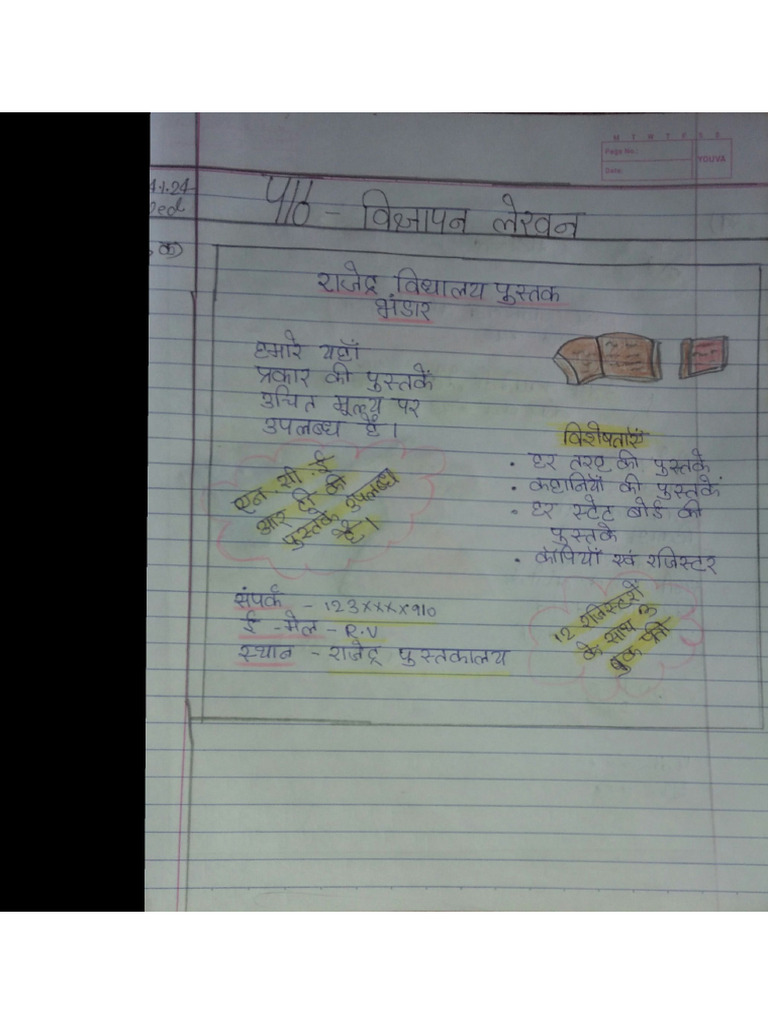 M T W T F S S
Page No.:
YOUVA
Date:
विज्ञापन लेखन
राजेन्द्र विद्यालय पुस्तक
भंडार
हमारे यहाँ
प्रकार की पुस्तकें
उचित मूल्य पर
उपलब्ध हैं।
एन सी ई
आर टी की
पुस्तकें उपलब्ध
है।
विशेषताएँ
• हर तरह की पुस्तकें
• कहानियों की पुस्तकें
• हर स्टेट बोर्ड की
पुस्तकें
• कॉपियाँ एवं रजिस्टर
12 रजिस्टरों
के साथ
एक फ्री
संपर्क - 123xxxx910
ई-मेल - R.V
स्थान - राजेन्द्र पुस्तकालय